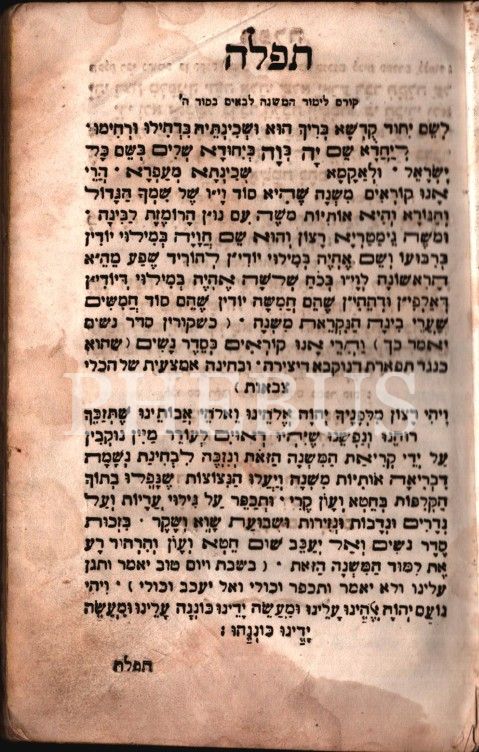 תפלה
קודם לימוד המשנה לבאים בסוד ה'
לְשֵׁם יִחוּד קֻדְשָׁא בְּרִיךְ הוּא וּשְׁכִינְתֵּיהּ בִּדְחִילוּ וּרְחִימוּ
לְיַחֲדָא שֵׁם יָהּ בְּוָה בְּיִחוּדָא שְׁלִים בְּשֵׁם כָּל
יִשְׂרָאֵל · וּלְאַקְמָא שְׁכִינְתָּא מֵעַפְרָא · הֲרֵי
אָנוּ קוֹרְאִים מִשְׁנָה שֶׁהִיא סוֹד וָי"ו שֶׁל שִׁמְךָ הַגָּדוֹל
וְהַנּוֹרָא וְהִיא אוֹתִיּוֹת מֹשֶׁה עִם נוּ"ן הָרוֹמֶזֶת לַבִּינָה ·
וּמֹשֶׁה גִּימַטְרִיָּא רָצוֹן וְהוּא שֵׁם הֲוָיָה בְּמִילּוּי יוּדִי"ן
בְּרִבּוּעוֹ וְשֵׁם אֶהְיֶה בְּמִילּוּי יוּדִי"ן לְהוֹרִיד שֶׁפַע מֵהֵ"א
הָרִאשׁוֹנָה לְוָי"ו בְּכֹחַ שְׁלֹשָׁה אֶהְיֶה בְּמִילּוּי דְּיוּדִי"ן
דְּאַלְפִי"ן וּדְהֵהִי"ן שֶׁהֵם חֲמִשָּׁה יוּדִי"ן שֶׁהֵם סוֹד חֲמִשִּׁים
שַׁעֲרֵי בִּינָה הַנִּקְרֵאת מִשְׁנָה · ( כשקורין סדר נשים
יאמר כך ) וַהֲרֵי אָנוּ קוֹרְאִים כְּסֵדֶר נָשִׁים ( שהוא
כנגד תפארת דנוקבא דיצירה · ובחינה אמצעית של הכלי
צבאות )
וִיהִי רָצוֹן מִלְּפָנֶיךָ יְהֹוָה אֱלֹהֵינוּ וֵאלֹהֵי אֲבוֹתֵינוּ שֶׁתְּזַכֵּךְ
רוּחֵנוּ וְנַפְשֵׁנוּ שֶׁיִּהְיוּ רְאוּיִם לְעוֹרֵר מַיִּין נוּקְבִין
עַל יְדֵי קְרִיאַת הַמִּשְׁנָה הַזֹּאת וְנִזְכֶּה לִבְחִינַת נְשָׁמָה
דִּבְרִיאָה אוֹתִיּוֹת מִשְׁנָה וְיַעֲלוּ הַנִּצוֹצוֹת שֶׁנָּפְלוּ בְּתוֹךְ
הַקְּלִפּוֹת בְּחֵטְא וְעָוֹן קֶרִי · וּתְכַפֵּר עַל גִּילּוּי עֲרָיוֹת וְעַל
נְדָרִים וּנְדָבוֹת וּנְזִירוּת וּשְׁבוּעַת שָׁוְא וְשֶׁקֶר · בִּזְכוּת
סֵדֶר נָשִׁים וְאַל יְעַכֵּב שׁוּם חֵטְא וְעָוֹן וְהִרְהוּר רַע
אֶת לִמּוּד הַמִּשְׁנָה הַזֹּאת · ( בשבת ויום טוב יאמר ותגן
עלינו ולא יאמר ותכפר וכולי ואל יעכב וכולי ) · וִיהִי
נוֹעַם יְהֹוָה אֱלֹהֵינוּ עָלֵינוּ וּמַעֲשֵׂה יָדֵינוּ כּוֹנְנָה עָלֵינוּ וּמַעֲשֵׂה
יָדֵינוּ כּוֹנְנֵהוּ :
תפלה
PHEBUS